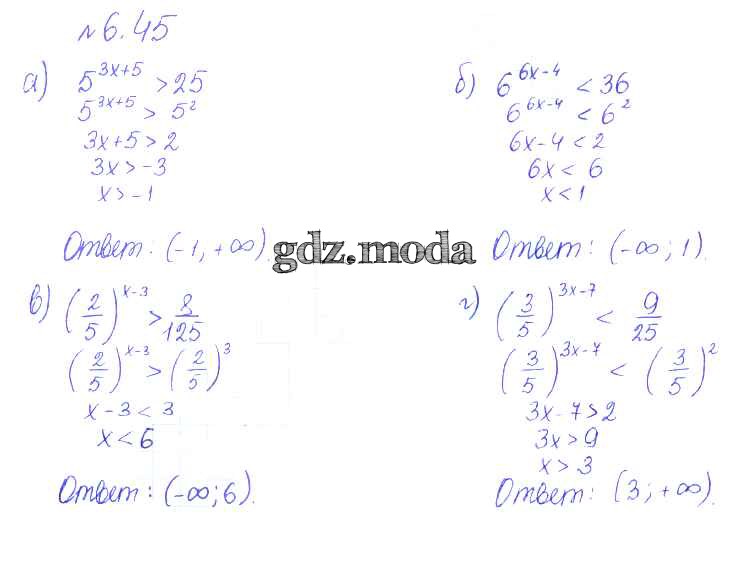 №6.45
а) 5^(3x+5) > 25
5^(3x+5) > 5^2
3x+5 > 2
3x > -3
x > -1
Ответ: (-1, +∞).
б) 6^(6x-4) < 36
6^(6x-4) < 6^2
6x-4 < 2
6x < 6
x < 1
Ответ: (-∞; 1).
gdz.moda
в) (2/5)^(x-3) > 8/125
(2/5)^(x-3) > (2/5)^3
x-3 < 3
x < 6
Ответ: (-∞; 6).
г) (3/5)^(3x-7) < 9/25
(3/5)^(3x-7) < (3/5)^2
3x-7 > 2
3x > 9
x > 3
Ответ: (3; +∞).